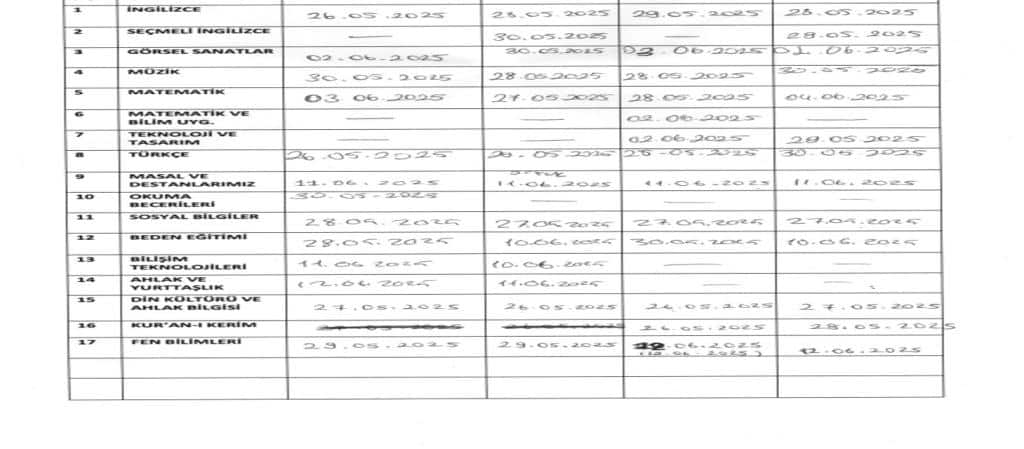 1 İNGİLİZCE 26.05.2025 28.05.2025 29.05.2025 28.05.2025
2 SEÇMELİ İNGİLİZCE — 30.05.2025 — 28.05.2025
3 GÖRSEL SANATLAR 02.06.2025 30.05.2025 02.06.2025 01.06.2025
4 MÜZİK 30.05.2025 28.05.2025 28.05.2025 30.05.2025
5 MATEMATİK 03.06.2025 27.05.2025 28.05.2025 04.06.2025
6 MATEMATİK VE
BİLİM UYG. — — 02.06.2025 —
7 TEKNOLOJİ VE
TASARIM — — 02.06.2025 28.05.2025
8 TÜRKÇE 26.05.2025 28.05.2025 30.05.2025
9 MASAL VE
DESTANLARIMIZ 11.06.2025 11.06.2025 11.06.2025 11.06.2025
10 OKUMA
BECERİLERİ 30.05-2025 — — —
11 SOSYAL BİLGİLER 28.05.2025 27.05.2025 27.05.2025 27.05.2025
12 BEDEN EĞİTİMİ 28.05.2025 10.06.2025 30.05.2025 10.06.2025
13 BİLİŞİM
TEKNOLOJİLERİ 11.06 2025 10.06.2025 — —
14 AHLAK VE
YURTTAŞLIK 12.06 2025 11.06.2025 — —
15 DİN KÜLTÜRÜ VE
AHLAK BİLGİSİ 27.05.2025 26.05.2025 26.05.2025 27.05.2025
16 KUR'AN-I KERİM 26.05.2025 28.05.2025
17 FEN BİLİMLERİ 29.05.2025 29.05.2025 12.06.2025 12.06.2025
(12.06.2025)